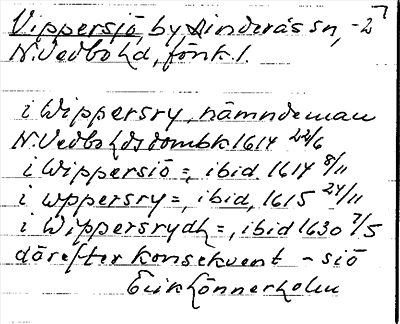 Vippersjö, by, Linderås sn, -27
N. Vedbo hd, Jönk. l.
i Wippersry, nämndeman
N. Vedbo hds dombk 1614 22/6
i Wippersiö =, ibid. 1614 8/11
i wppersry =, ibid, 1615 24/11
i Wippersrydh =, ibid 1630 7/5
därefter konsekvent - siö
Erik Lönnerholm